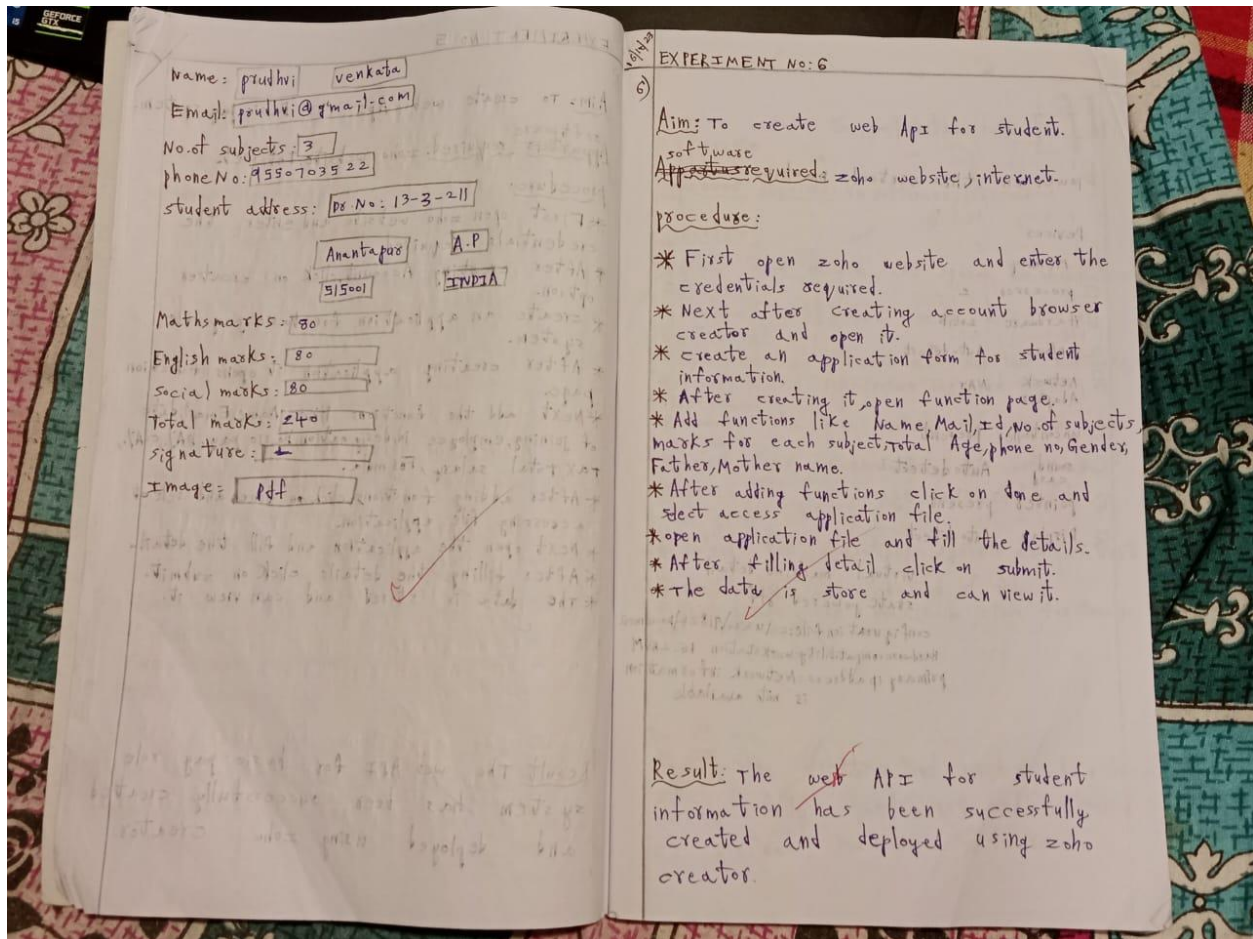 GEFORCE
GTX
i5
Name: prudhvi venkata
Email: prudhvi@gmail.com
No.of subjects: 3
phone No: 9550703522
student address: Dr.No: 13-3-211
Anantapur A.P
515001 INDIA
Maths marks: 80
English marks: 80
Social marks: 80
Total marks: 240
signature:
Image: Pdf
EXPERIMENT NO: 6
6)
Aim: To create web ApI for student.
software
required: zoho website, internet.
procedure:
* First open zoho website and enter the
credentials required.
* Next after creating account browser
creator and open it.
* create an application form for student
information.
* After creating it, open function page.
* Add functions like Name, Mail, Id, No.of subjects,
marks for each subject, Total Age, phone no, Gender,
Father, Mother name.
* After adding functions click on done and
select access application file.
* open application file and fill the details.
* After filling detail click on submit.
* The data is store and can view it.
Result: The web API for student
information has been successfully
created and deployed using zoho
creator.